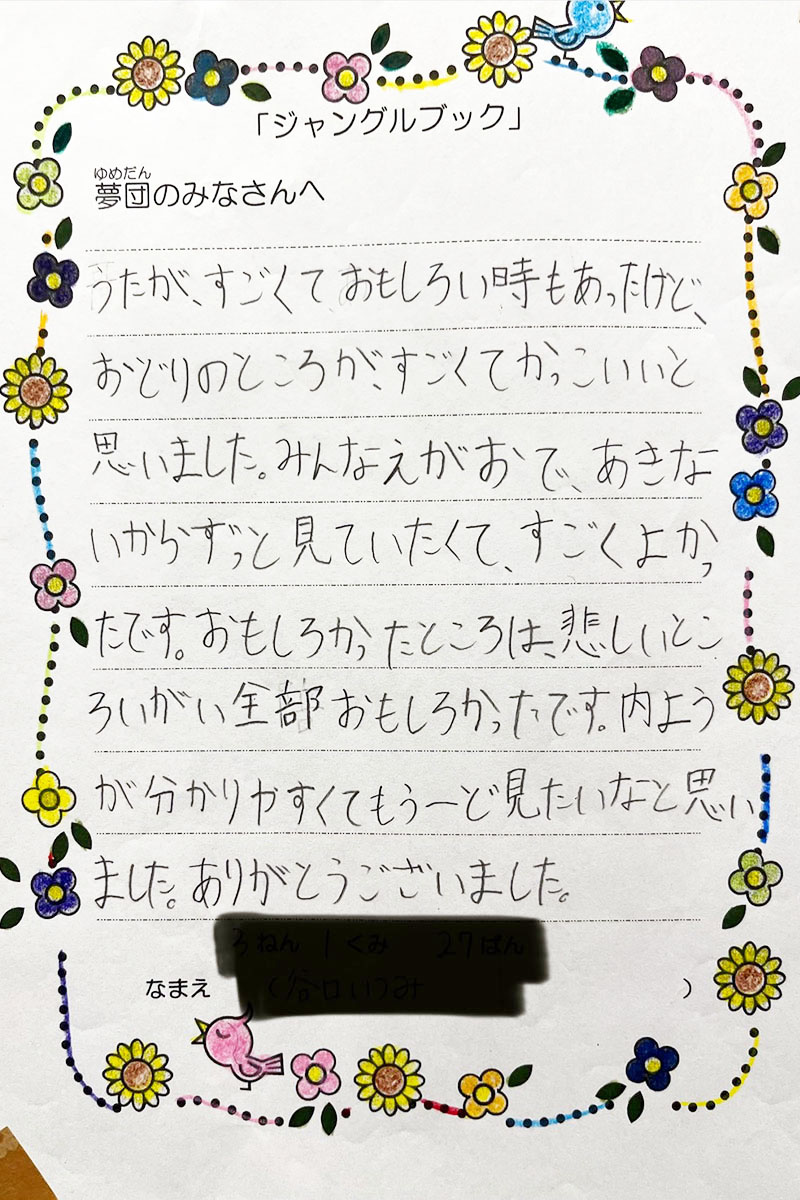 「ジャングルブック」
ゆめだん
夢団のみなさんへ
うたが、すごくて、おもしろい時もあったけど、
おどりのところが、すごくてかっこいいと
思いました。みんなえがおで、あきな
いからずっと見ていたくて、すごくよかっ
たです。おもしろかったところは、悲しいとこ
ろいがい全部おもしろかったです。内よう
が分かりやすくてもう一ど見たいなと思い
ました。ありがとうございました。
なまえ )